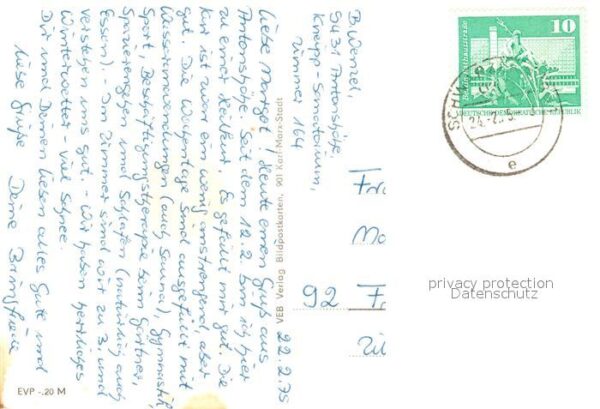 B. Wenzel,
5431 Antonshöhe
Kneipp-Sanatorium,
Zimmer 164
22.2.75
Liebe Margot! Heute einen Gruß aus
Antonshöhe. Seit dem 12.2. bin ich hier
zu einer Heilkur. Es gefällt mir gut. Die
Kur ist zwar ein wenig anstrengend, aber
gut. Die Wochentage sind ausgefüllt mit
Wasseranwendungen (auch Sauna), Gymnastik,
Sport, Beschäftigungstherapie beim Gärtner,
Spazierengehen und Schlafen (natürlich auch
Essen). - Im Zimmer sind wir zu 3. und
verstehen uns gut. - Wir haben herrliches
Winterwetter - viel Schnee.
Dir und Deinen Lieben alles Gute und
liebe Grüße Deine Bringfriede
EVP -.20 M
VEB Verlag Bildpostkarten, 901 Karl-Marx-Stadt
10
DEUTSCHE DEMOKRATISCHE REPUBLIK
e
92
privacy protection
Datenschutz